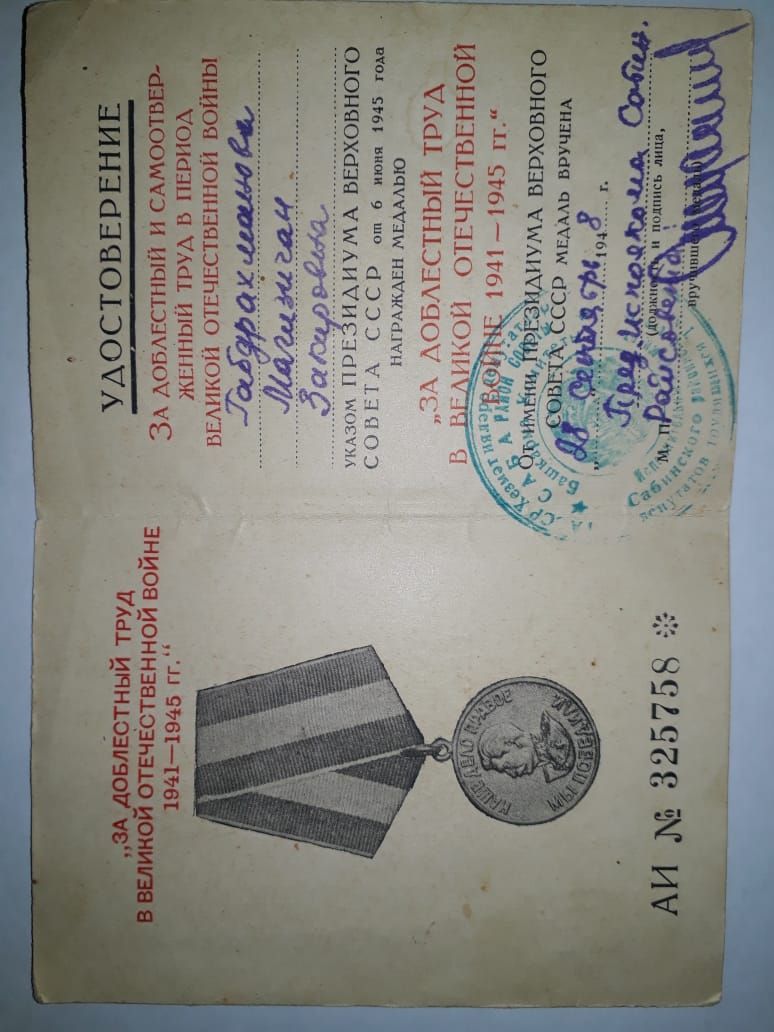 „ЗА ДОБЛЕСТНЫЙ ТРУД
В ВЕЛИКОЙ ОТЕЧЕСТВЕННОЙ ВОЙНЕ
1941—1945 гг.“
НАШЕ ДЕЛО ПРАВОЕ
МЫ ПОБЕДИЛИ
АИ № 325758
УДОСТОВЕРЕНИЕ
ЗА ДОБЛЕСТНЫЙ И САМООТВЕР-
ЖЕННЫЙ ТРУД В ПЕРИОД
ВЕЛИКОЙ ОТЕЧЕСТВЕННОЙ ВОЙНЫ
Габдрахманова
Закировна
УКАЗОМ ПРЕЗИДИУМА ВЕРХОВНОГО
СОВЕТА СССР от 6 июня 1945 года
НАГРАЖДЕН МЕДАЛЬЮ
„ЗА ДОБЛЕСТНЫЙ ТРУД
В ВЕЛИКОЙ ОТЕЧЕСТВЕННОЙ
ВОЙНЕ 1941—1945 гг.“
От ИМЕНИ ПРЕЗИДИУМА ВЕРХОВНОГО
СОВЕТА СССР МЕДАЛЬ ВРУЧЕНА
„28 194 8 г.
Пред. исполкома Сабин.
М. П. (должность и подпись лица,
Райсовета
вручившего медаль)
САБА РАЙОН
Сабинского
депутатов трудящихся